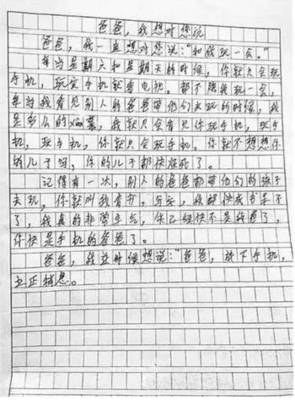 爸爸,我想对您说
爸爸,我一直想对您说:"和我玩一会。"
每当是期六和是期天的时候,你就只会玩
手机,玩完手机就看电视,都不陪我玩一会,
每当我看见别人的爸爸带他们去玩的时候,我
是多么的xian慕,你就只会看见你玩手机,玩手
机,玩手机,你就只会玩手机,你就不想想你
的儿子吗,你的儿子都快
记得有一次,别人的爸爸都带他们的孩子
去玩,你就叫我看书,写字,我都快成书呆子
了,我真的非常生气,你已经快不是我爸了,
你快是手机的爸爸了。
爸爸,我这时候想说:"爸爸,放下手机,
立正稍息。